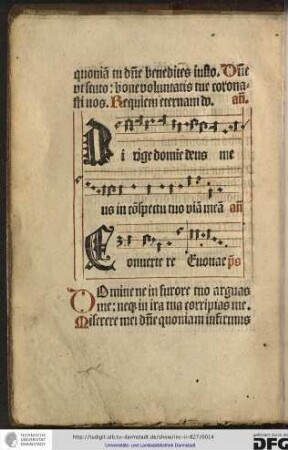 quoniā tu dn̄e benedices iusto. Dn̄e
vt scuto: bone voluntatis tue corona-
sti nos. Requiem eternam do. an̄.
Dirige domine deus me
us in cōspectu tuo viā meā an̄
Conuerte re Euouae ps̄
Domine ne in furore tuo arguas
me: neqꝫ in ira tua corripias me.
Miserere mei dn̄e quoniam infirmus
http://tudigit.ulb.tu-darmstadt.de/show/inc-ii-827/0014
Universitäts- und Landesbibliothek Darmstadt
TECHNISCHE
UNIVERSITÄT
DARMSTADT
DFG